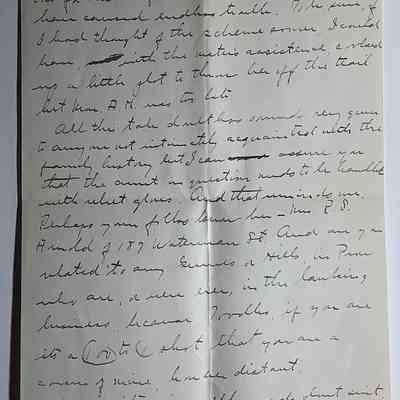 have caused endless trouble. To be sure, if
I had thought of the scheme sooner, I could
have, with the 's assistance, 
up a little plot to throw her off the trail
but now, it was too late
All this tale doubtless sounds very queer
to anyone not intimately acquainted with the
family history but I can assure you
that the aunt in question needs to be handled
with velvet gloves. And that reminds me.
Perhaps your folks know her – Mrs. R. S.
Arnold of 187 Waterman St. And are you
related to any or Hills, in Prov.
who are, or were ever, in the banking
business, because , if you are
it's a 100 to 1 shot that you are a
cousin of mine, however distant.